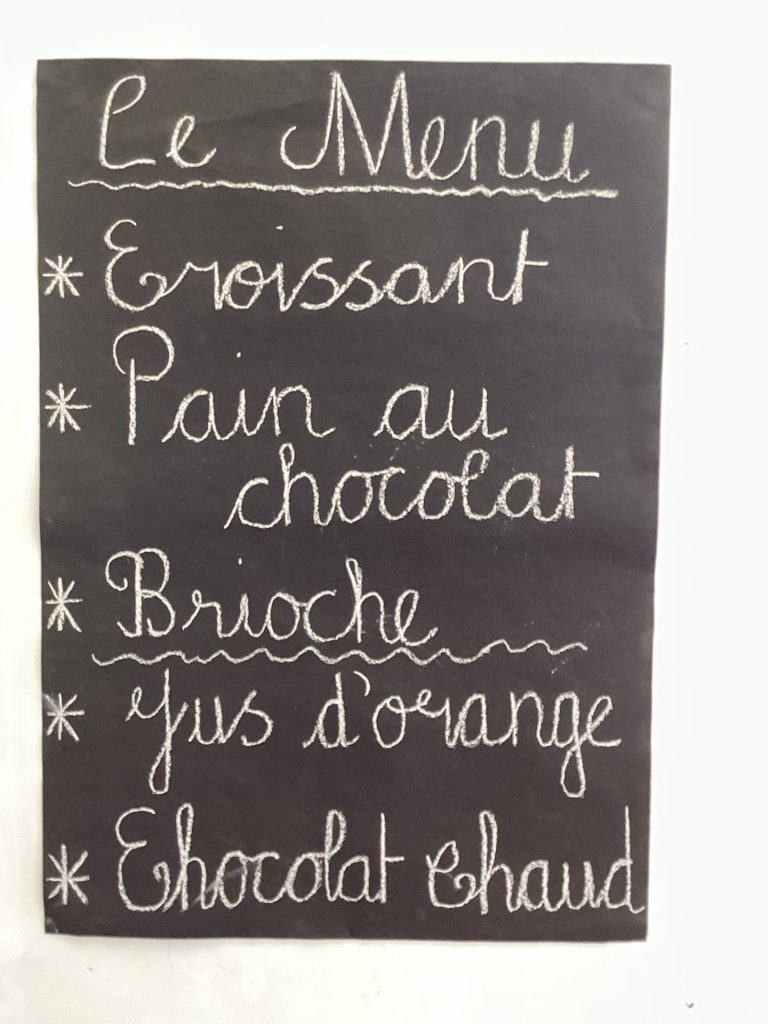 Le Menu
* Croissant
* Pain au
chocolat
* Brioche
* Jus d'orange
* Chocolat Chaud